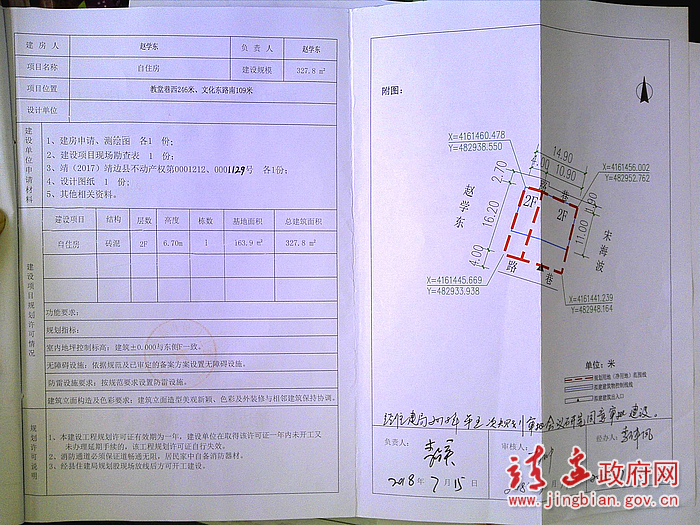 建 房 人
赵学东
负 责 人
赵学东
项目名称
自住房
建设规模
327.8 m²
项目位置
教堂巷西246米、文化东路南109米
设计单位
建设单位申请材料
1、建房申请、测绘图 各1 份;
2、建设项目现场勘查表 1 份;
3、靖(2017)靖边县不动产权第0001212、0001129号 各1份;
4、设计图纸 1 份;
5、其他相关资料。
建设项目规划许可情况
建设项目 结构 层数 高度 栋数 基地面积 总建筑面积
自住房 砖混 2F 6.70m 1 163.9 m² 327.8 m²
功能要求:
规划指标:
室内地坪控制标高:建筑±0.000与东侧F一致。
无障碍设施:依据规范及已审定的备案方案设置无障碍设施。
防雷设施要求:按规范要求设置防雷设施。
建筑立面构造及色彩要求:建筑立面造型美观新颖、色彩及外装修与相邻建筑保持协调。
规划许可说明
1、本建设工程规划许可证有效期为一年。建设单位在取得该许可证一年内未开工又
未办理延期手续的,该工程规划许可证自行失效。
2、消防通道必须保证道畅通无阻,居民家中自备消防器材。
3、经县住建局规划股现场放线后方可开工建设。
附图:
X=4161460.478
Y=482938.550
14.90
4.00
10.90
X=4161456.002
Y=482952.762
2.70
巷
1.90
赵学东
16.20
2F
2F
11.00
宋海波
4.00
路
巷
X=4161445.669
Y=482933.938
X=4161441.239
Y=482948.164
单位:米
规划用地(净用地)范围线
拟建建筑物控制线线
拟建建筑出入口
负责人:
审核人:
经办人:
2018 年 7 月 15 日
靖边政府网
www.jingbian.gov.cn